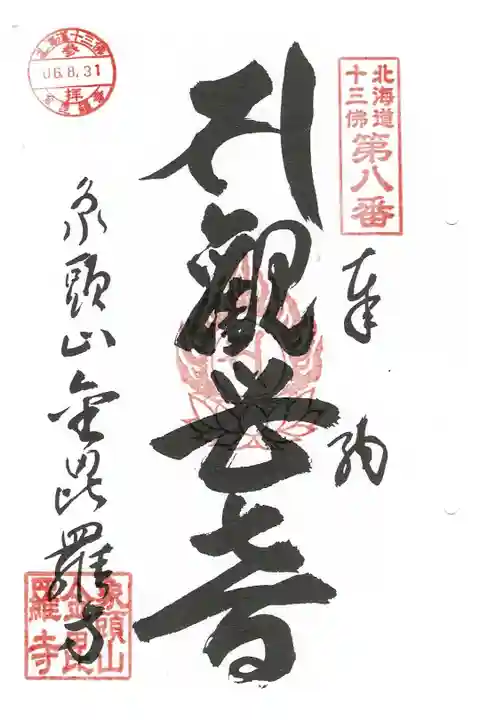 北海道
十三佛
第八番
奉納
観世音
象頭山金毘羅寺
象頭山
金毘
羅寺
北海道十三佛
参
06.8.31
拝